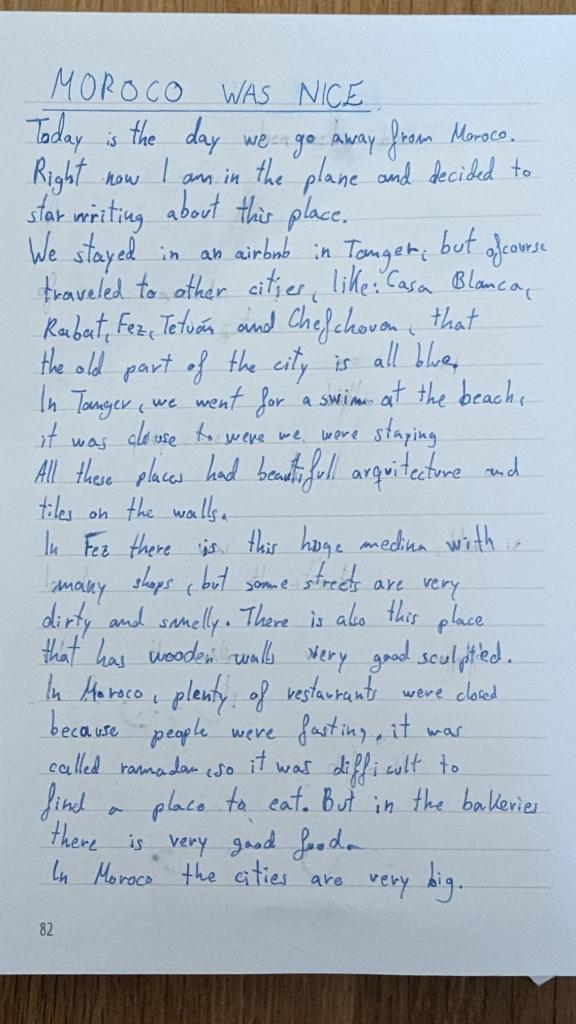 MOROCO WAS NICE
Today is the day we go away from Moroco.
Right now I am in the plane and decided to
star writing about this place.
We stayed in an airbnb in Tanger, but ofcourse
traveled to other cities, like: Casa Blanca,
Rabat, Fez, Tetuán and Chefchovan, that
the old part of the city is all blue.
In Tanger, we went for a swim at the beach,
it was clouse to were we were staying
All these places had beautifull arquitecture and
tiles on the walls.
In Fez there is this huge medina with
many shops, but some streets are very
dirty and smelly. There is also this place
that has wooden walls very good sculptied.
In Moroco, plenty of restaurants were closed
because people were fasting, it was
called ramadan, so it was difficult to
find a place to eat. But in the bakeries
there is very good food.
In Moroco the cities are very big.
82